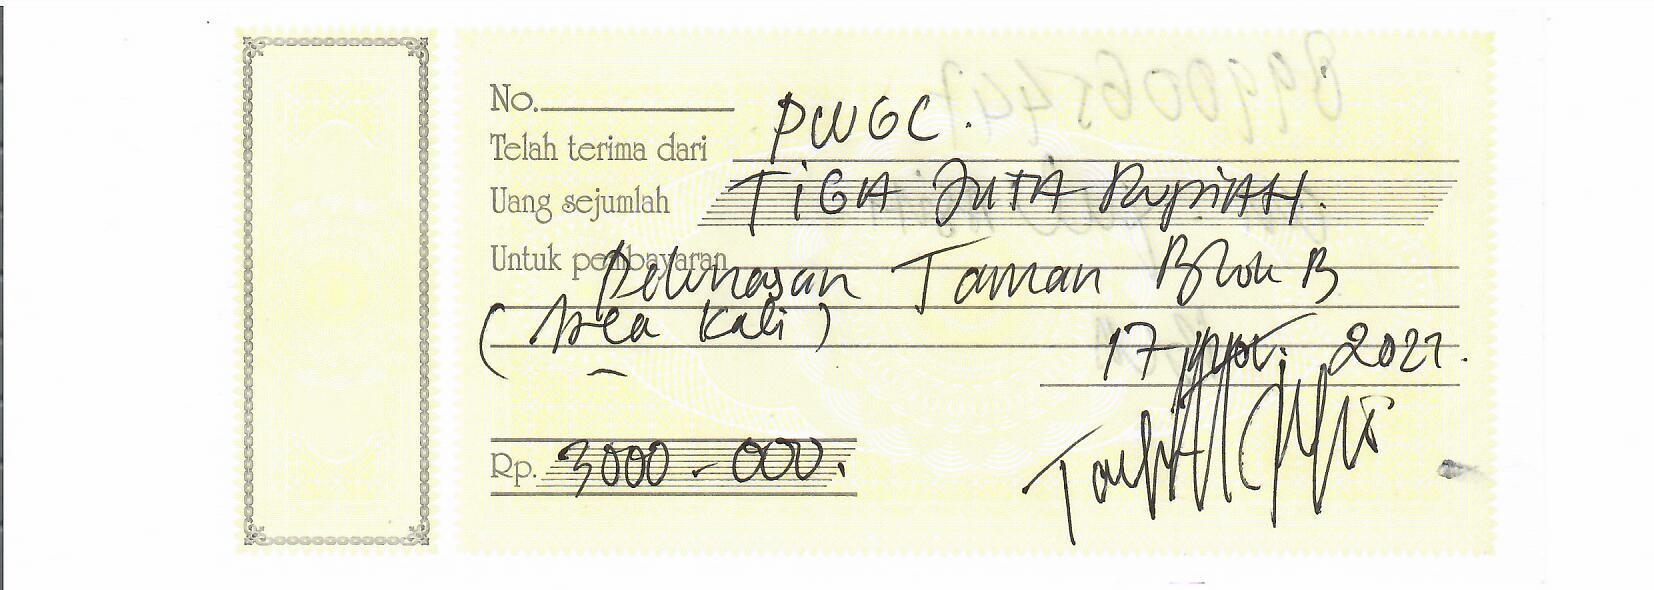 No.
Telah terima dari PWGC.
Uang sejumlah TIGA JUTA RupiAH.
Untuk pembayaran
Pelunasan Taman Blok B
(Area Kali)
17 2021.
Rp. 3000-000.